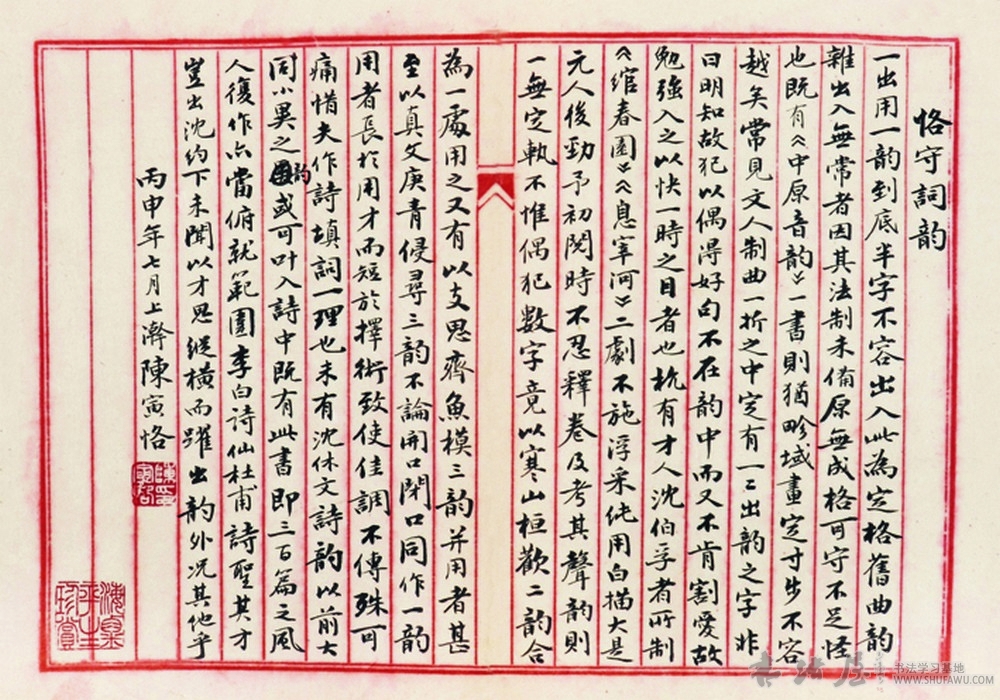 恪守詞韵
一出用一韵到底半字不容出入此為定格舊曲韵
雜出入無常者因其法制未備原無成格可守不足怪
也既有《中原音韵》一書則猶畛域畫定寸步不容
越矣常見文人制曲一折之中定有一二出韵之字非
曰明知故犯以偶得好句不在韵中而又不肯割愛故
勉強入之以快一時之目者也杭有才人沈伯孚者所制
《綰春園》《息宰河》二劇不施浮采純用白描大是
元人後勁予初閱時不忍釋卷及考其聲韵則
一無定軌不惟偶犯數字竟以寒山桓歡二韵合
為一處用之又有以支思齊魚模三韵并用者甚
至以真文庚青侵尋三韵不論開口閉口同作一韵
用者長於用才而短於擇術致使佳調不傳殊可
痛惜夫作詩填詞一理也未有沈休文詩韵以前大
同小異之韵或可叶入詩中既有此書即三百篇之風
人復作亦當俯就範圍李白詩仙杜甫詩聖其才
豈出沈約下未聞以才思縱橫而躍出韵外况其他乎
丙申年七月上澣陳寅恪
書法屋
书法学习基地
WWW.SHUFAWU.COM